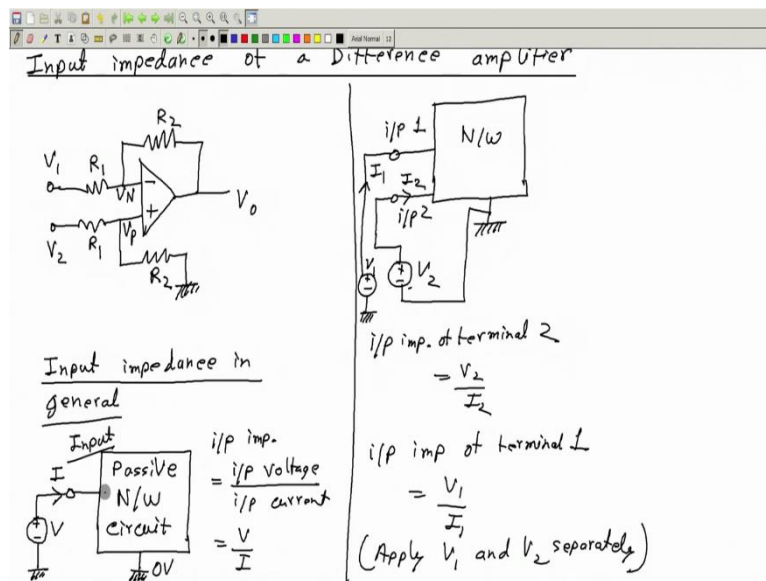 Arial Normal 12
Input impedance of a Difference amplifier
R2
V1 R1
VN
-
V0
+
V2 R1 VP
R2
Input impedance in
general
Input
I
Passive
N/W
circuit
V
0V
i/p imp.
= i/p voltage
i/p current
= V
I
i/p 1
N/W
I1
I2
i/p2
V1
+
-
+
-
V2
i/p imp. of terminal 2
= V2
I2
i/p imp of terminal 1
= V1
I1
(Apply V1 and V2 separately)